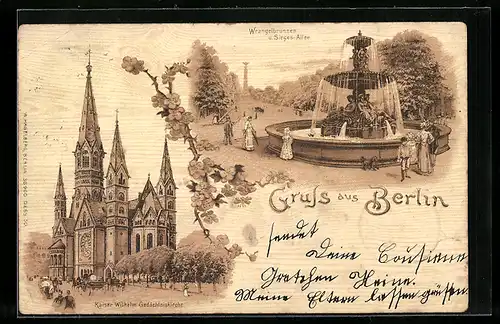 Wrangelbrunnen
u. Sieges-Allee
Gruß aus Berlin
sendet
Deine Cousine
Gretchen Heine.
Meine Eltern lassen grüßen.
Kaiser Wilhelm Gedächtniskirche.